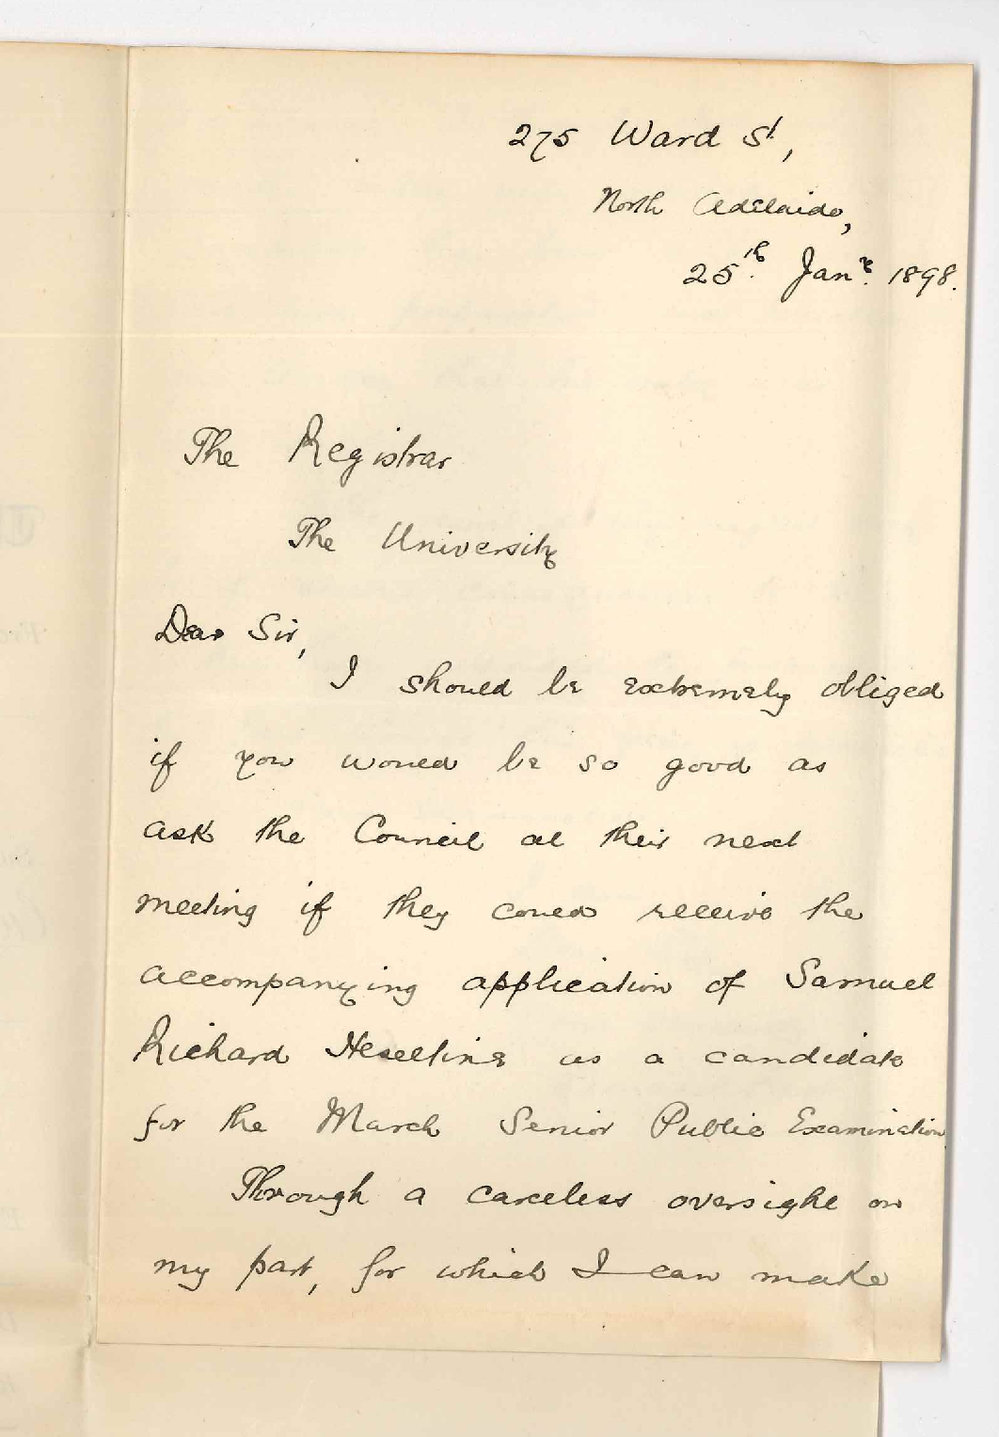 275 Ward St,
North Adelaide,
25th Jany. 1898.
The Registrar
The University
Dear Sir,
I should be extremely obliged
if you would be so good as
ask the Council at their next
meeting if they could receive the
accompanying application of Samuel
Richard Heseltine as a candidate
for the March Senior Public Examination
Through a careless oversight on
my part, for which I can make